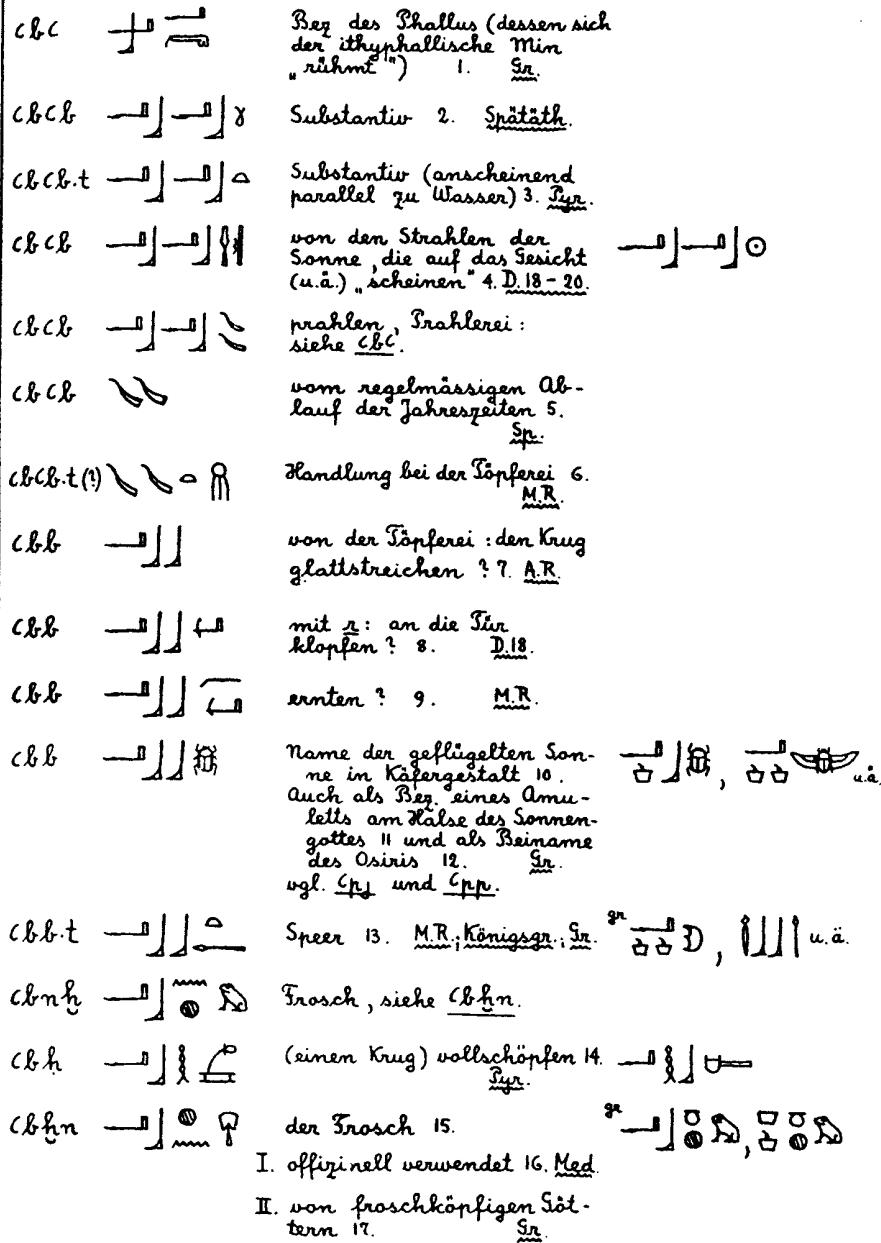 ꜥbꜥ Bez des Phallus (dessen sich
der ithyphallische Min
„rühmt“) 1. Gr.
ꜥbꜥb Substantiv 2. Spätäth.
ꜥbꜥb.t Substantiv (anscheinend
parallel zu Wasser) 3. Pyr.
ꜥbꜥb von den Strahlen der
Sonne, die auf das Gesicht
(u.ä.) „scheinen“ 4. D.18-20.
ꜥbꜥb prahlen, Prahlerei:
siehe ꜥbꜥ.
ꜥbꜥb vom regelmässigen Ab-
lauf der Jahreszeiten 5.
Sp.
ꜥbꜥb.t(?) Handlung bei der Töpferei 6.
M.R.
ꜥbb von der Töpferei: den Krug
glattstreichen ? 7. A.R.
ꜥbb mit r: an die Tür
klopfen ? 8. D.18.
ꜥbb ernten ? 9. M.R.
ꜥbb Name der geflügelten Son-
ne in Käfergestalt 10. , u.ä.
Auch als Bez. eines Amu-
letts am Halse des Sonnen-
gottes 11 und als Beiname
des Osiris 12. Gr.
vgl. ꜥpj und ꜥpp.
ꜥbb.t Speer 13. M.R.; Königsgr.; Gr. gr , u.ä.
ꜥbnḫ Frosch, siehe ꜥbḫn.
ꜥbḥ (einen Krug) vollschöpfen 14.
Pyr.
ꜥbḫn der Frosch 15. gr ,
I. offizinell verwendet 16. Med.
II. von froschköpfigen Göt-
tern 17. Gr.